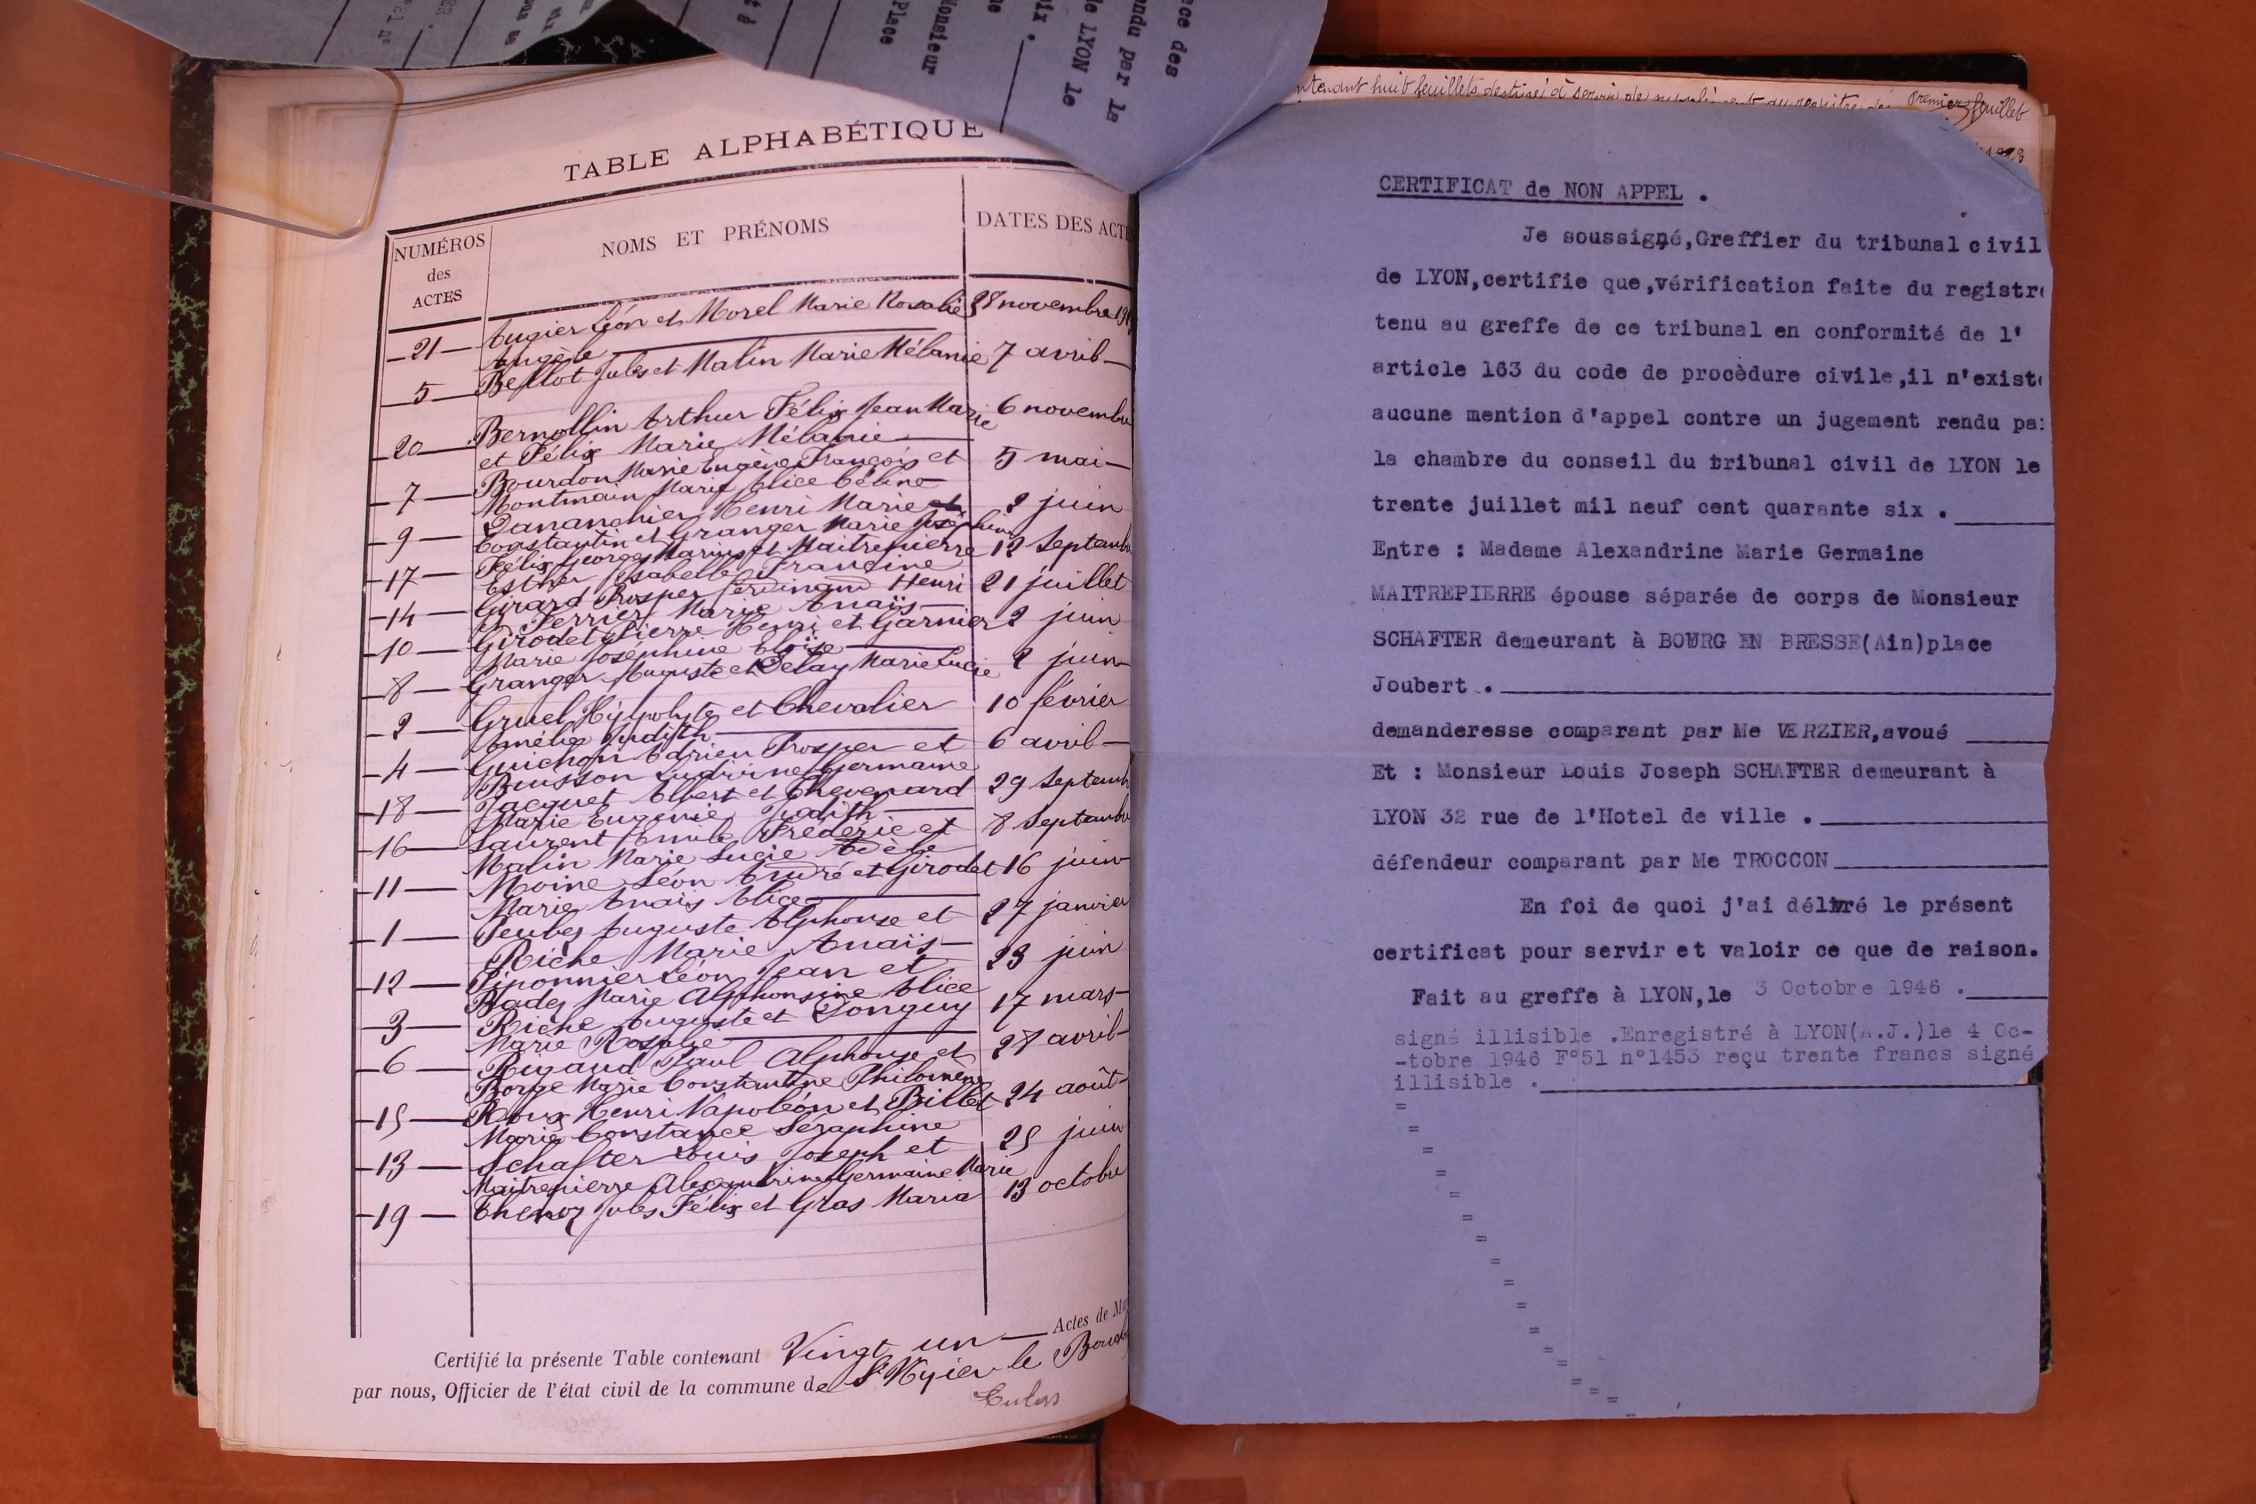 TABLE ALPHABÉTIQUE
NUMÉROS
des
ACTES
NOMS ET PRÉNOMS
DATES DES ACT
21 Augier Léon et Morel Marie Rosalie 28 novembre
Angèle
5 Bellot Jules et Malin Marie Mélanie 7 avril
20 Bernollin Arthur Félix Jean Marie 6 novembre
et Félix Marie Mélanie
7 Bourdon Marie Eugène François et 5 mai
Montmain Marie Alice Céline
9 Dananchier Henri Marie et 2 juin
Constantin et Granger Marie Joséphine
17 Félix Georges Marius et Maitrepierre 12 Septemb
Esther Isabelle Francine
14 Girard Prosper Ferdinand Henri 21 juillet
et Perrier Marie Anaïs
10 Girodet Pierre Henri et Garnier 2 juin
Marie Joséphine Eloïse
8 Granger Auguste et Delay Marie Lucie 2 juin
2 Gruel Hypolyte et Chevalier 10 février
Amélie Judith
4 Guichon Adrien Prosper et 6 avril
Buisson Ludivine Germaine
18 Jacquet Albert et Chevenard 29 Septemb
Marie Eugénie Judith
16 Laurent Emile Frédéric et 8 Septemb
Malin Marie Lucie Adèle
11 Moine Léon André et Girodet 16 juin
Marie Anaïs Alice
1 Auguste Alphonse et 27 janvier
Riche Marie Anaïs
12 Piponnier Léon Jean et 23 juin
Badez Marie Alphonsine Alice
3 Riche Auguste et Donguy 17 mars
Marie Rosalie
6 Rigaud Paul Alphonse et 28 avril
Borge Marie Constantine Philomène
15 Roux Henri Napoléon et Billet 24 août
Marie Constance Séraphine
13 Schafter Louis Joseph et 25 juin
Maitrepierre Alexandrine Germaine Marie
19 Thenoz Jules Félix et Gras Maria 13 octobre
Certifié la présente Table contenant Vingt un Actes de
par nous, Officier de l'état civil de la commune de St Nizier le
ntenant huit feuillets destiné à servir de supplément au registre des Premier feuillet
CERTIFICAT de NON APPEL .
Je soussigné,Greffier du tribunal civil
de LYON,certifie que,vérification faite du registre
tenu au greffe de ce tribunal en conformité de l'
article 163 du code de procèdure civile,il n'existe
aucune mention d'appel contre un jugement rendu pa
la chambre du conseil du tribunal civil de LYON le
trente juillet mil neuf cent quarante six .
Entre : Madame Alexandrine Marie Germaine
MAITREPIERRE épouse séparée de corps de Monsieur
SCHAFTER demeurant à BOURG EN BRESSE(Ain)place
Joubert .
demanderesse comparant par Me VERZIER,avoué
Et : Monsieur Louis Joseph SCHAFTER demeurant à
LYON 32 rue de l'Hotel de ville .
défendeur comparant par Me TROCCON
En foi de quoi j'ai délivré le présent
certificat pour servir et valoir ce que de raison.
Fait au greffe à LYON,le 3 Octobre 1946 .
signé illisible .Enregistré à LYON(A.J.)le 4 Oc-
-tobre 1946 F°51 n°1453 reçu trente francs signé
illisible .
ce des
endu par la
de LYON le
ix .
onsieur
Place